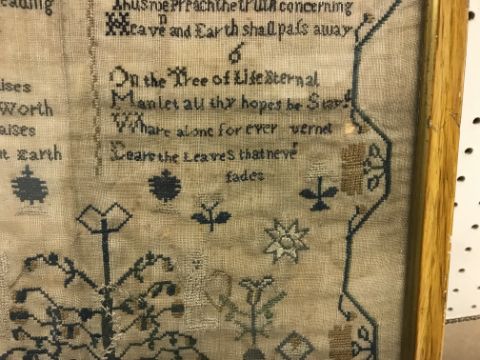 eading
Thus we Preach the truth concerning
Heavn and Earth shall pass away
6
On the Tree of Life Eternal
Man let all thy hopes be Stay
Whare alone for ever vernel
Bears the Leaves that never
fades
ises
Worth
aises
Earth